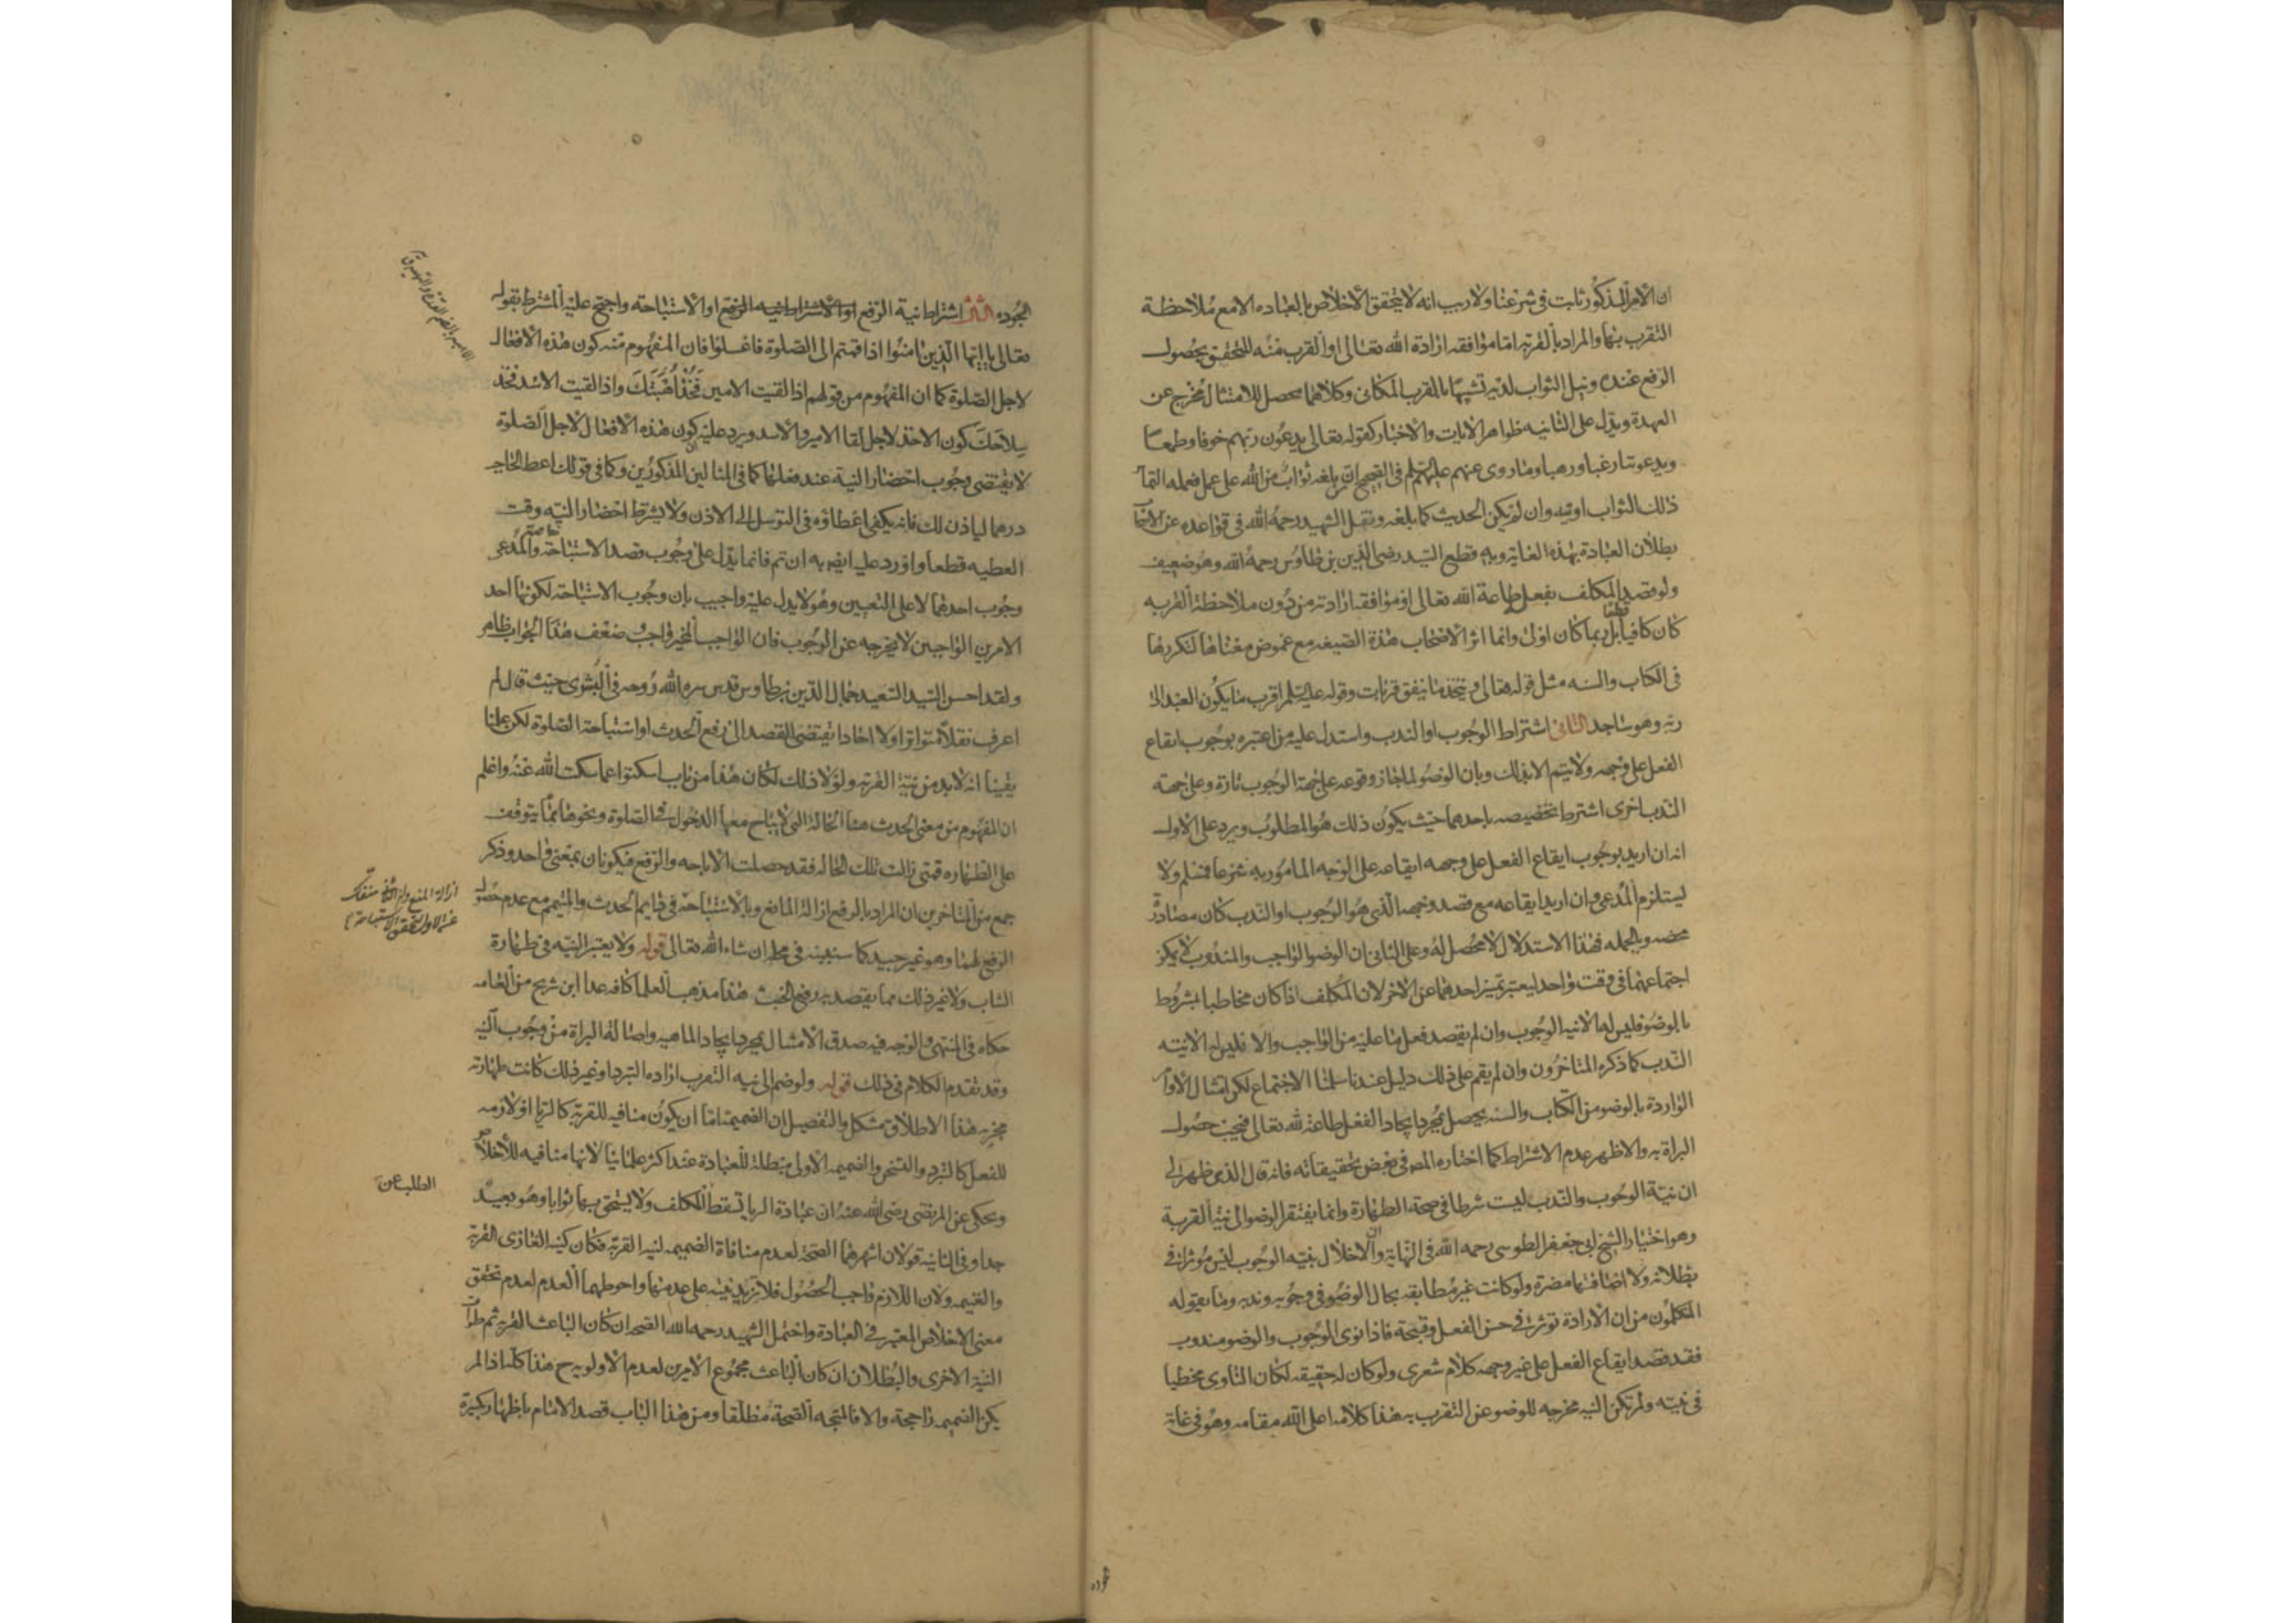 ان الامر المذكور ثابت فى شرعنا ولا ريب انه لا يتحقق الاخلاص بالعباده الا مع ملاحظة
التقرب بها والمراد بالقربة اما موافقه ارادة الله تعالى او القرب منه المتحقق بحصول
الرفع عنده ونيل الثواب لديه تشبيها بالقرب المكانى وكلاهما محصل للامتثال مخرج عن
العهدة ويدل على الثانيه ظواهر الايات والاخبار كقوله تعالى يدعون ربهم خوفا وطمعا
ويدعوننا رغبا ورهبا وما روى عنهم عليهم السلم فى الصحيح ان من بلغه ثواب من الله على عمل فعمله التماس
ذلك الثواب اوتيه وان لم يكن الحديث كما بلغه ونقل الشهيد رحمه الله فى قواعده عن الاصحاب
بطلان العبادة بهذه الغاية وبه قطع السيد رضى الدين بن طاوس رحمه الله وهو ضعيف
ولو قصد المكلف بفعل طاعة الله تعالى او موافقة ارادته من دون ملاحظة القربه
كان كافيا قطعا بل ربما كان اولى وانما اثر الاصحاب هذة الصيغه مع غموض معناها لتكررها
فى الكتاب والسنه مثل قوله تعالى ويتخذ ما ينفق قربات وقوله عليه السلم اقرب ما يكون العبد الى
ربه وهو ساجد الثانى اشتراط الوجوب او الندب واستدل عليه من اعتبره بوجوب ايقاع
الفعل على وجهه ولا يتم الا بذلك وبان الوضو لما جاز وقوعه على جهة الوجوب تارة وعلى جهه
الندب اخرى اشترط تخصيصه باحدهما حيث يكون ذلك هو المطلوب ويرد على الاول
انه ان اريد بوجوب ايقاع الفعل على وجهه ايقاعه على الوجه المامور به شرعا فمسلم ولا
يستلزم المدعى وان اريد ايقاعه مع قصد وجهه الذى هو الوجوب او الندب كان مصادرة
محضه وبالجمله فهذا الاستدلال لا محصل له وعلى الثانى ان الوضو الواجب والمندوب لا يمكن
اجتماعهما فى وقت واحد ليعتبر تميز احدهما عن الاخر لان المكلف اذا كان مخاطبا بمشروط
بالوضو فليس له الا نية الوجوب وان لم يقصد فعل ما عليه من الواجب والا فليس له الا نيته
الندب كما ذكره المتاخرون وان لم يقم على ذلك دليل عندنا سلمنا الاجتماع لكن امتثال الاوامر
الواردة بالوضو من الكتاب والسنه يحصل بمجرد ايجاد الفعل طاعة لله تعالى فيجب حصول
البراة به والاظهر عدم الاشتراط كما اختاره المص فى بعض تحقيقاته فانه قال الذى ظهر لى
ان نية الوجوب والندب ليست شرطا فى صحة الطهارة وانما يفتقر الوضو الى نية القربة
وهو اختيار الشيخ ابى جعفر الطوسى رحمه الله فى النهاية وان الاخلال بنيه الوجوب ليس موثرا فى
بطلانه ولا اضافتها مضرة ولو كانت غير مطابقه بحال الوضو فى وجوبه وندبه وما يقوله
المتكلمون من ان الارادة توثر فى حسن الفعل وقبحه فاذا نوى الوجوب والوضو مندوب
فقد قصد ايقاع الفعل على غير وجهه كلام شعرى ولو كان له حقيقه لكان الناوى مخطيا
فى نيته ولم تكن النيه مخرجه للوضو عن التقرب به هذا كلامه اعلى الله مقامه وهو فى غاية
الجوده
الجوده الثالث اشتراط نية الرفع او الاشتراط نيه الرفع او الاستباحه واحتج عليه المشترط بقوله
تعالى يا ايها الذين امنوا اذا قمتم الى الصلوة فاغسلوا فان المفهوم منه كون هذه الافعال
لاجل الصلوة كما ان المفهوم من قولهم اذا لقيت الامير فخذ اهبتك واذا لقيت الاسد فخذ
سلاحك كون الاخذ لاجل لقا الامير والاسد ويرد عليه ان كون هذه الافعال لاجل الصلوة
لا يقتضى وجوب احضار النية عند فعلها كما فى المثالين المذكورين وكما فى قولك اعط الحاجب
درهما لياذن لك فانه يكفى اعطاؤه فى التوسل الى الاذن ولا يشترط احضار النيه وقت
العطيه قطعا واورد عليه ايضا به ان تم فانما يدل على وجوب قصد الاستباحة خاصة والمدعى
وجوب احدهما لا على التعيين وهو لا يدل عليه واجيب بان وجوب الاستباحة لكونها احد
الامرين الواجبين لا يخرجه عن الوجوب فان الواجب المخير واجب وضعف هذا الجواب ظاهر
ولقد احسن السيد السعيد جمال الدين بن طاوس قدس سره الله روحه فى البشرى حيث قال لم
اعرف نقلا متواترا ولا احادا يقتضى القصد الى رفع الحدث او استباحة الصلوة لكن علمنا
يقينا انه لا بد من نية القربه ولولا ذلك لكان هذا من باب اسكتوا عما سكت الله عنه واعلم
ان المفهوم من معنى الحدث هنا الحالة التى لا يباح معها الدخول فى الصلوة ونحوها مما يتوقف
على الطهاره فمتى زالت تلك الحاله فقد حصلت الاباحه والرفع فيكونان بمعنى واحد وذكر
جمع من المتاخرين ان المراد بالرفع ازالة المانع وبالاستباحة فى دايم الحدث والمتيمم مع عدم حصول
الرفع لهما وهو غير جيد كما سنبينه فى محله ان شاء الله تعالى قوله ولا يعتبر النيه فى طهارة
الثياب ولا غير ذلك مما يقصد به رفع الخبث هذا مذهب العلما كافه عدا ابن شريح من العامه
حكاه فى المنتهى والوجه فيه صدق الامتثال بمجرد ايجاد الماهيه واصالة البراة من وجوب النيه
وقد تقدم الكلام فى ذلك قوله ولو ضم الى نيه التقرب اراده التبرد او غير ذلك كانت طهارته
مجزيه هذا الاطلاق مشكل والتفصيل ان الضميمة اما ان يكون منافيه للقربة كالريا او لازمه
للفعل كالتبرد والتسخن والضميمه الاولى مبطلة للعبادة عند اكثر علمائنا لانها منافيه للاخلاص
ويحكى عن المرتضى رضى الله عنه ان عبادة الريا تسقط المكلف ولا يستحق بها ثوابا وهو بعيد
جدا وفى الثانية قولان اشهرهما الصحة لعدم منافاة الضميمه لنيه القربة فكان كنيه الغازى القربة
والغنيمه ولان اللازم واجب الحصول فلا تزيد نيته على عدمها واحوطهما العدم لعدم تحقق
معنى الاخلاص المعتبر فى العبادة واحتمل الشهيد رحمه الله الصحه ان كان الباعث القربه ثم طرات
النية الاخرى والبطلان ان كان الباعث مجموع الامرين لعدم الاولويه هذا كله اذا لم
يكن الضميمه راجحة والا فالمتجه الصحة مطلقا ومن هذا الباب قصد الامام باظهار تكبيرة
ازالة المنع
الطلب عن